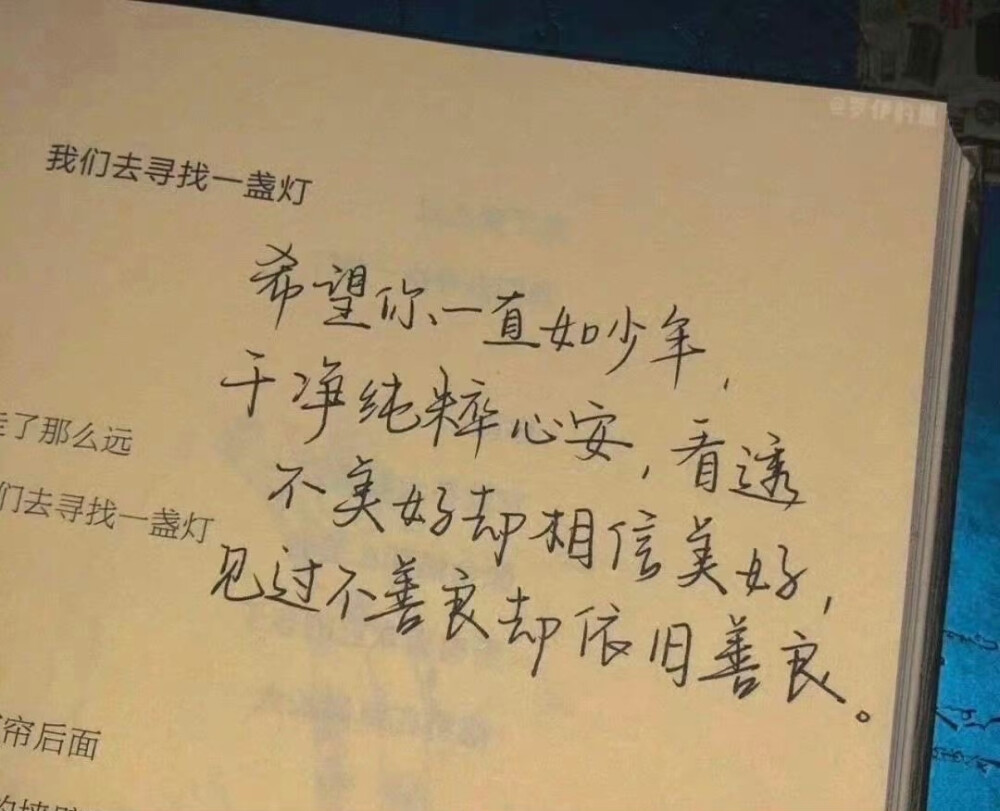 我们去寻找一盏灯
希望你一直如少年，
干净纯粹心安，看透
不美好却相信美好，
见过不善良却依旧善良。
走了那么远
们去寻找一盏灯
帘后面